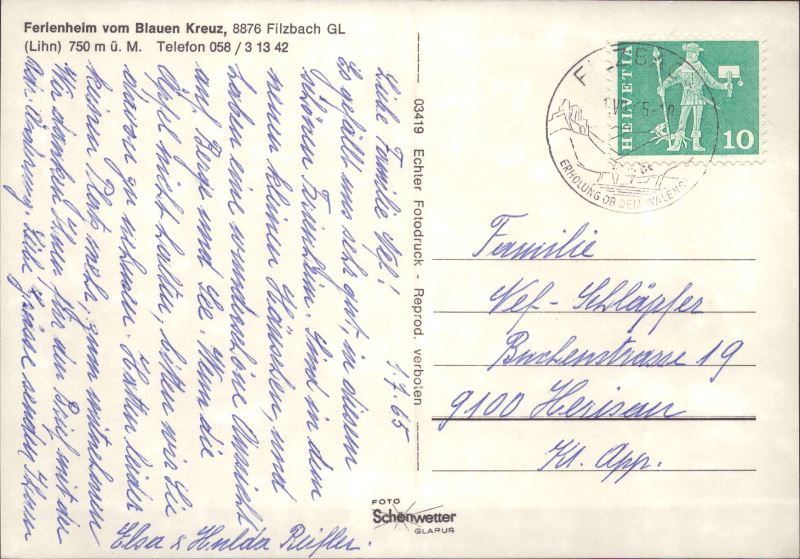 Ferienheim vom Blauen Kreuz, 8876 Filzbach GL
(Lihn) 750 m ü. M. Telefon 058 / 3 13 42
1.7.65
Liebe Familie Nef!
Es gefällt uns sehr gut, in diesem
schönen Fleckchen. Sind in dem
neuen kleinen Häuschen, und
haben eine wundervolle Aussicht
auf Berge und See. Wenn die
Äpfel nicht halten, bitten wir Sie
davon zu nehmen. Hatten leider
keinen Platz mehr, zum mitnehmen
Wir danken Ihnen für den Brief mit der
Liebe Grüsse senden Ihnen
Elsa & Hulda
03419 Echter Fotodruck - Reprod. verboten
FOTO
Schönwetter
GLARUS
HELVETIA
10
ERHOLUNG OB DEM WALENS
Familie
Nef-Schläpfer
Buchenstrasse 19
9100 Herisau
Kt. App.